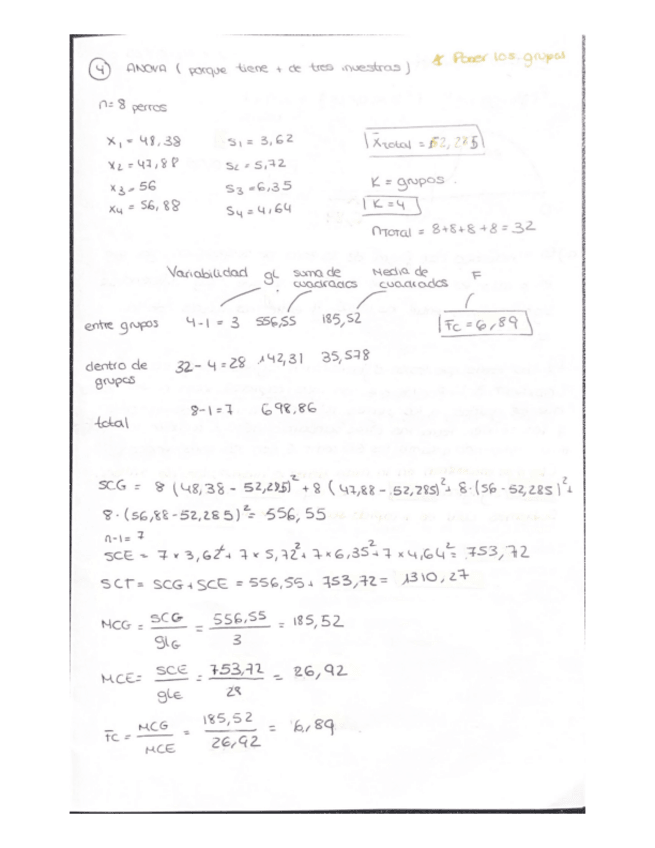 ④ ANOVA ( porque tiene + de tres muestras )
* Poner los grupos
n= 8 perros
x₁ = 48,38
x₂ = 47,88
x₃ = 56
x₄ = 56,88
S₁ = 3,62
S₂ = 5,72
S₃ = 6,35
S₄ = 4,64
X̄total = 52,285
K = grupos.
K = 4
nTotal = 8+8+8+8 = 32
Variabilidad gl suma de cuadrados Media de cuadrados F
entre grupos 4-1 = 3 556,55 185,52 Fc = 6,89
dentro de grupos 32-4 = 28 142,31 35,578
total 8-1 = 7 698,86
SCG = 8 (48,38 - 52,285)² + 8 (47,88 - 52,285)² + 8·(56 - 52,285)² +
8·(56,88 - 52,285)² = 556,55
n-1 = 7
SCE = 7 x 3,62² + 7 x 5,72² + 7 x 6,35² + 7 x 4,64² = 753,72
SCT = SCG + SCE = 556,55 + 753,72 = 1310,27
MCG = SCG / glG = 556,55 / 3 = 185,52
MCE = SCE / glE = 753,72 / 28 = 26,92
Fc = MCG / MCE = 185,52 / 26,92 = 6,89